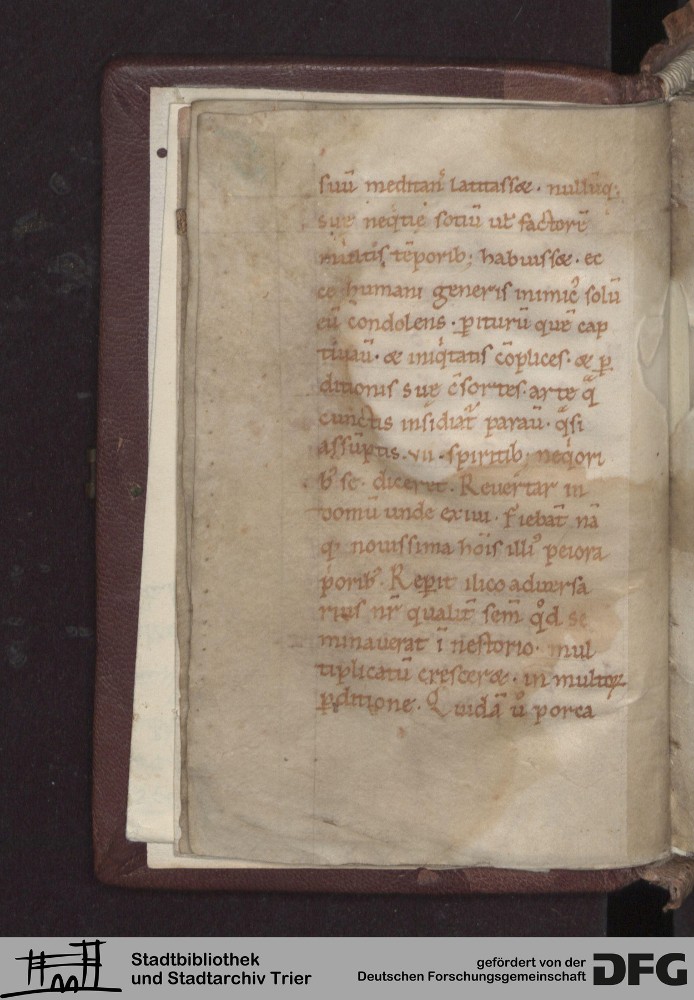 suū meditan̄ latitassæ · nullūq;
suę neq̇tię sotiū ut̄ factorē
multis tēporib; habuissæ · ec
ce humani generis inimic᾿ solū
eū condolens · ꝑiturū quē cap
tiuaū · æ iniq̇tatis cōplices · æ ꝑ
ditionis suę c̄sortes arte q̄
cunctis insidiat᷑ paraū · q̄si
assūptis · vii · spiritib; neq̇ori
b᾿ se · diceret · Reuertar in
domū unde exiui · Fiebat̄ nā
q; nouissima hōis illi᾿ peiora
p̓orib᾿ · Reꝑit ilico aduersa
rius nr̄ qualit̄ sem̄ qd̊ se
minauerat ī nestorio · mul
tiplicatū cresceræ · in multoꝝ
ꝑditione · Quidā ů porca
Stadtbibliothek
und Stadtarchiv Trier
gefördert von der
Deutschen Forschungsgemeinschaft
DFG